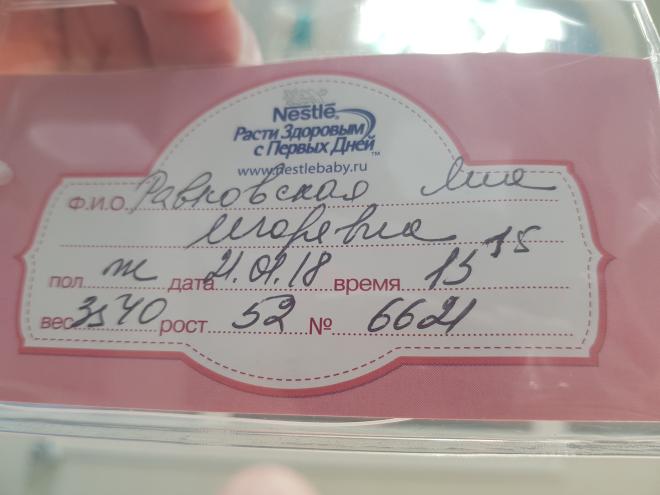 Nestlé
Расти Здоровым
с Первых Дней™
www.nestlebaby.ru
Ф.И.О. Равковская Лия
Игоревна
пол ж дата 21.01.18 время 15 15
вес 3540 рост 52 № 6621